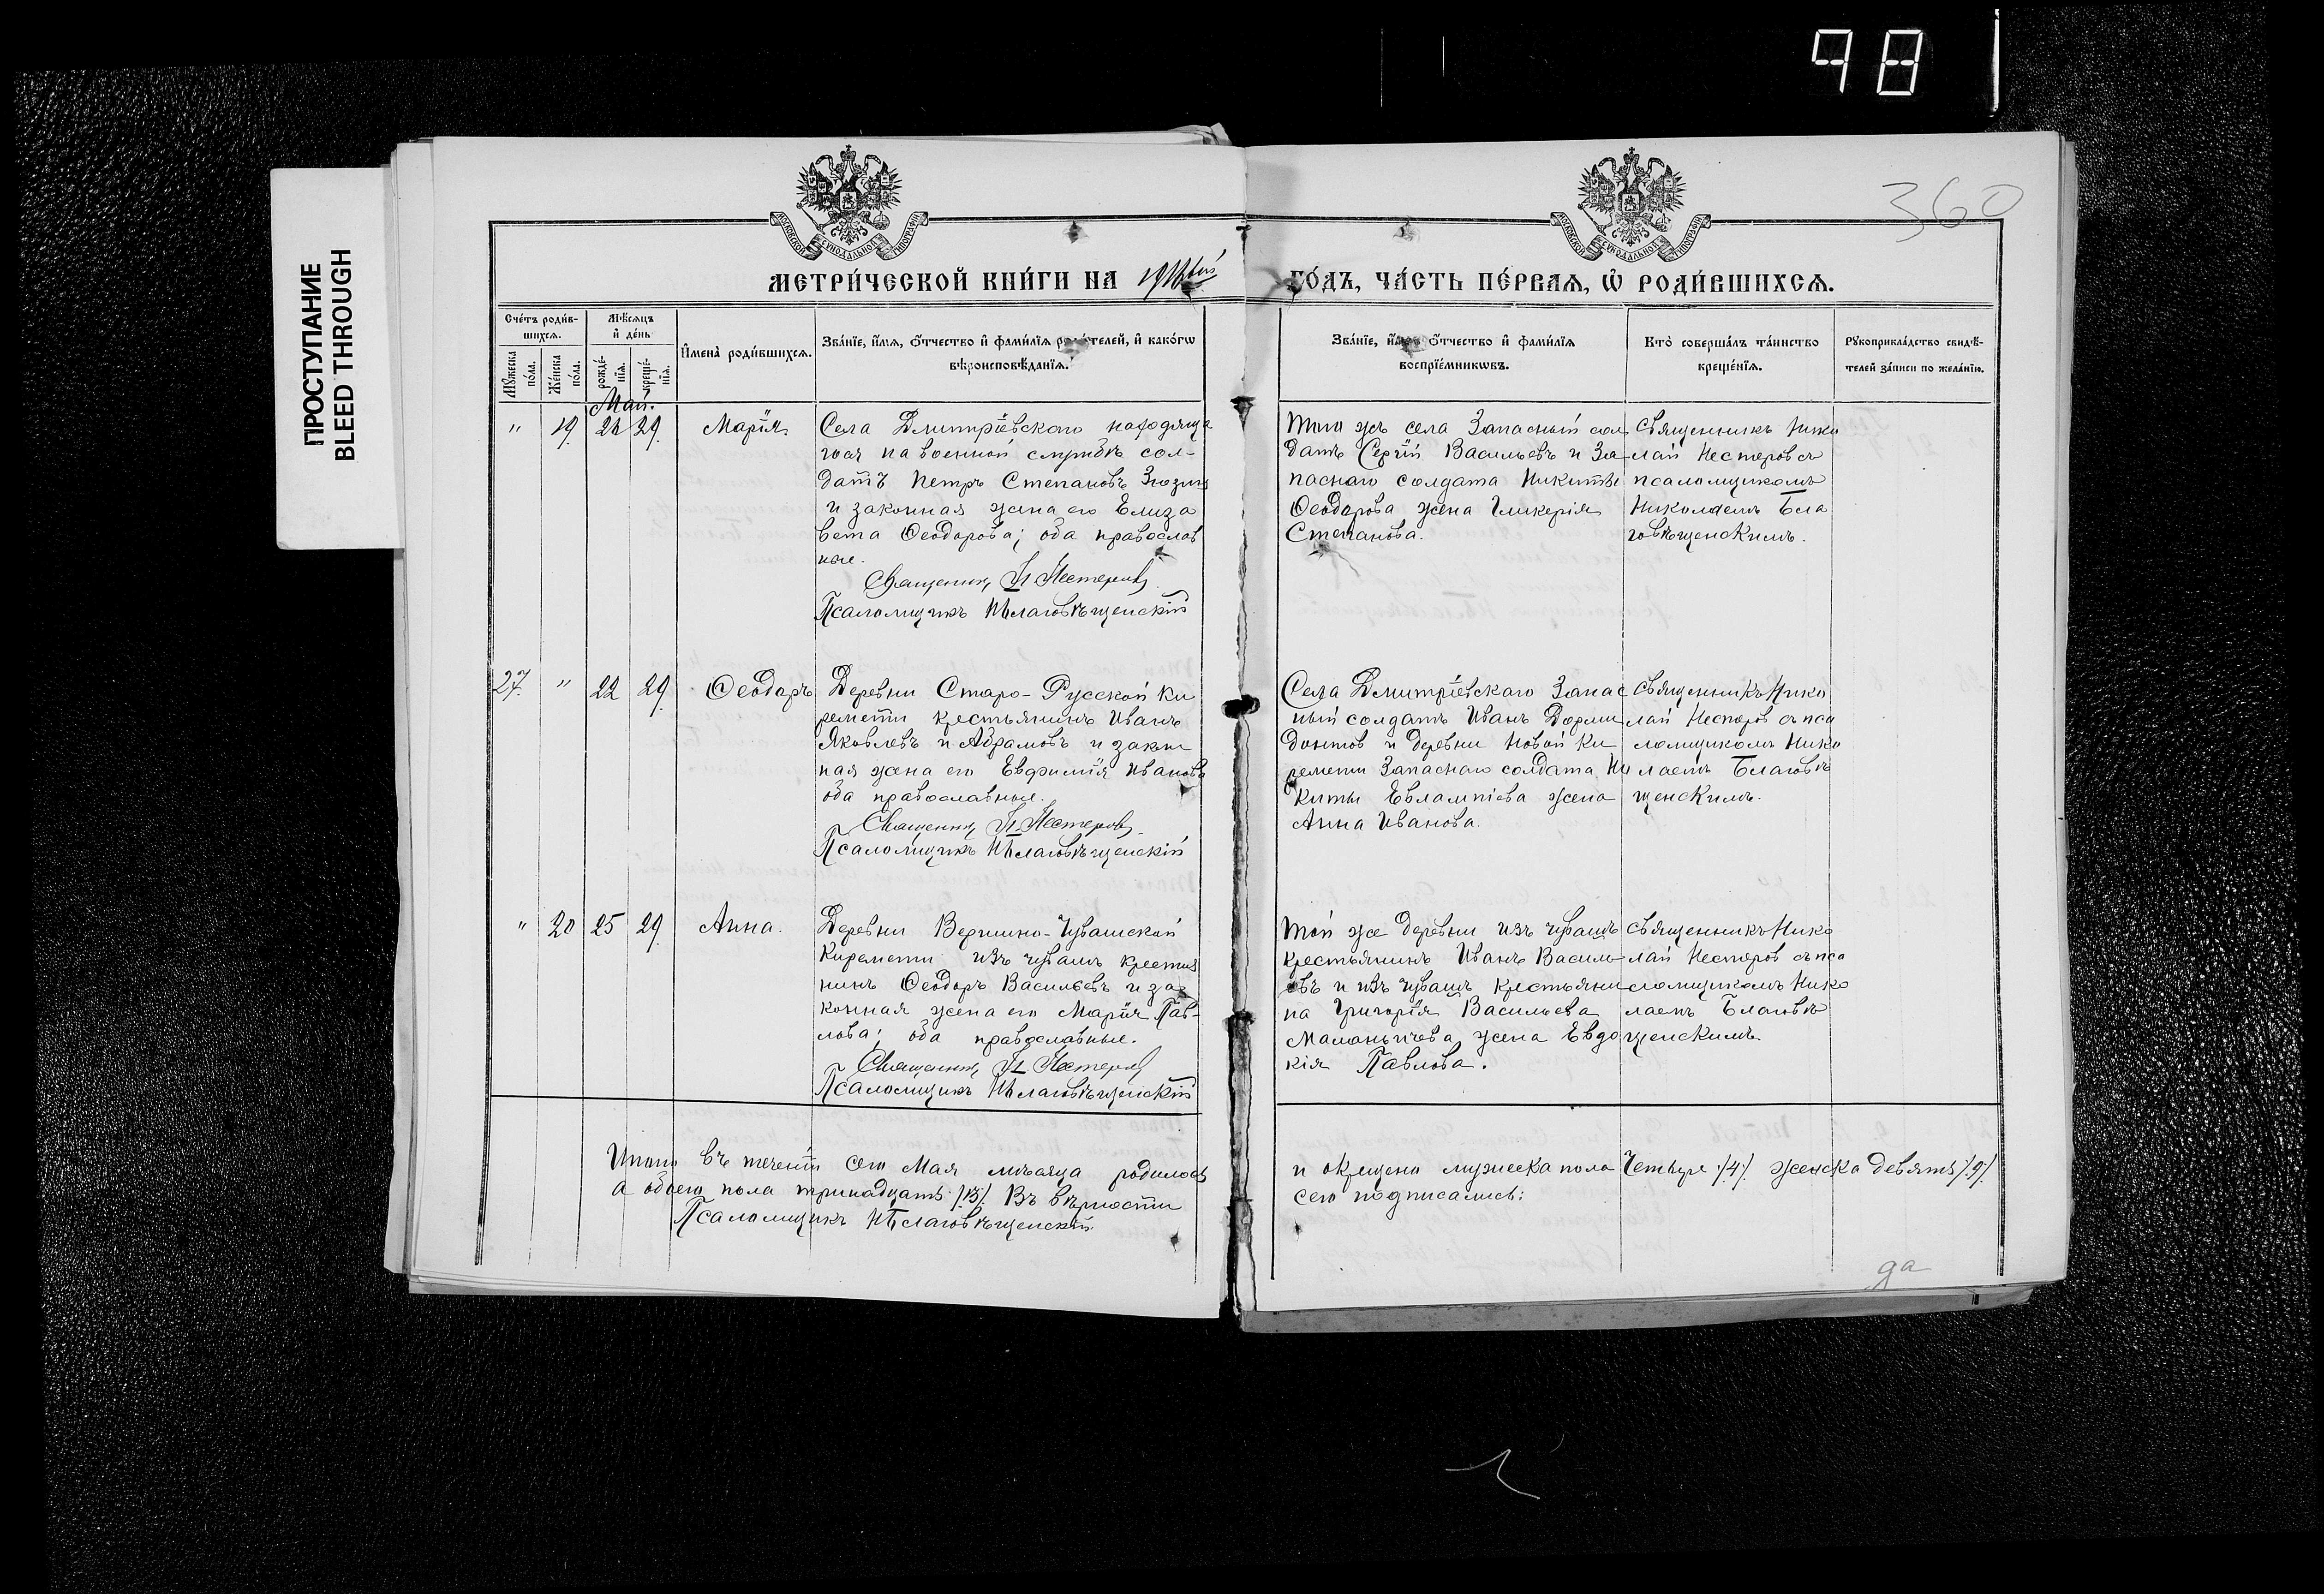 98
ПРОСТУПАНИЕ
BLEED THROUGH
360
МЕТРИ́ЧЕСКОЙ КНИ́ГИ НА
ГО́ДЪ, ЧА́СТЬ ПЕ́РВАѦ, Ѡ҆ РОДИ́ВШИХСѦ.
Сче́тъ роди́в-
шихсѧ.
Мꙋ́жеска по́ла.
Же́нска по́ла.
Мѣ́сѧцъ
и҆ де́нь
рожде́-нїѧ.
креще́-нїѧ.
И҆мена̀ роди́вшихсѧ.
Зва́нїе, и҆́мѧ, ѻ҆́тчество и҆ фами́лїѧ роди́телей, и҆ како́гѡ
вѣроисповѣ́данїѧ.
Зва́нїе, и҆́мѧ, ѻ҆́тчество и҆ фами́лїѧ
воспрїе́мникѡвъ.
Кто̀ соверша́лъ та́инство
креще́нїѧ.
Рꙋкоприкла́дство свидѣ́-
телей за́писи по жела́нїю.
Май.
" 19 29 Марія.
Села Дмитріевскаго находяща
гося на военной службѣ сол-
датъ Петръ Степановъ
и законная жена его Елиза
вета Ѳеодорова; оба православ
ные.
Священникъ Н Нестеровъ
Псаломщикъ Н Благовѣщенскій
Того жъ села Запасный сол
датъ Сергій Васильевъ и За
паснаго солдата Никиты
Ѳеодорова жена Гликерія
Степанова.
Священникъ Нико
лай Нестеровъ съ
псаломщикомъ
Николаемъ Бла
говѣщенскимъ.
27. " 22 29. Ѳеодоръ
Деревни Старо-Русской Ки
ремети крестьянинъ Иванъ
Яковлевъ Абрамовъ и закон
ная жена его Евфимія Иванова
оба православные.
Священникъ Н Нестеровъ
Псаломщикъ Н Благовѣщенскій
Села Дмитріевскаго Запас
ный солдатъ Иванъ Дорми
донтов и деревни Новой Ки
ремети Запаснаго солдата Ни
киты Евлампіева жена
Анна Иванова.
Священникъ Нико
лай Нестеров съ пса
ломщикомъ Нико
лаемъ Благовѣ
щенскимъ.
" 20 25 29 Анна.
Деревни Вершино-Чувашской
Киремети изъ чувашъ крестья
нинъ Ѳеодоръ Васильевъ и за
конная жена его Марія Пав-
лова; оба православные.
Священникъ Н Нестеровъ
Псаломщикъ Н Благовѣщенскій
Той же деревни изъ чувашъ
крестьянинъ Иванъ Василь
евъ и изъ чувашъ крестьяни
на Григорія Васильева
Маланьичева жена Евдо
кія Павлова.
Священникъ Нико
лай Нестеров съ пса
ломщикомъ Нико
лаемъ Благовѣ
щенскимъ.
Итого въ теченіи сего Мая мѣсяца родилось и окрещено мужеска пола Четыре /4/. женска девять /9/.
А обоего пола тринадцать /13/. Въ вѣрности сего подписались:
Псаломщикъ Н Благовѣщенскій